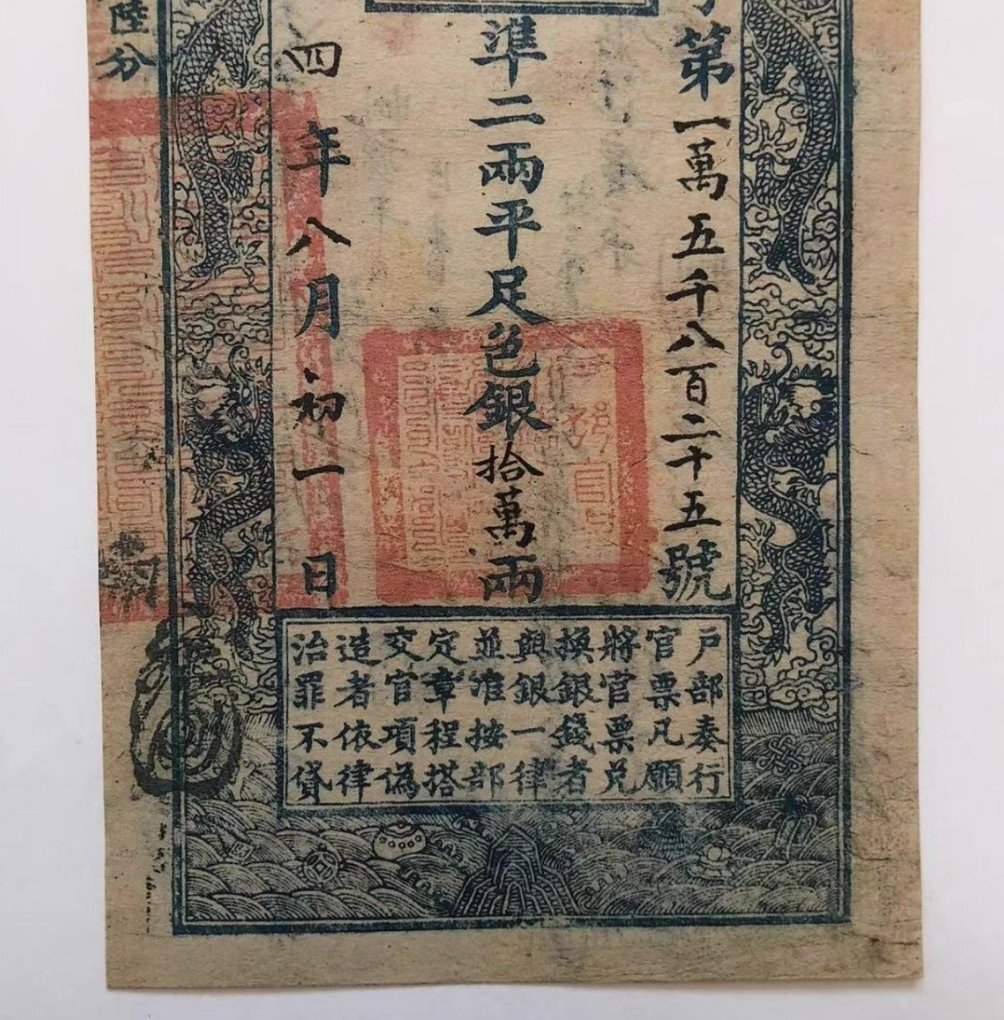 第一萬五千八百二十五號
準二兩平足色銀拾萬兩
四年八月初一日
陸分
戶部奏行
官票凡願
將官票兌
換銀錢者
與銀一律
並准按部
定章程搭
交官項僞
造者依律
治罪不貸